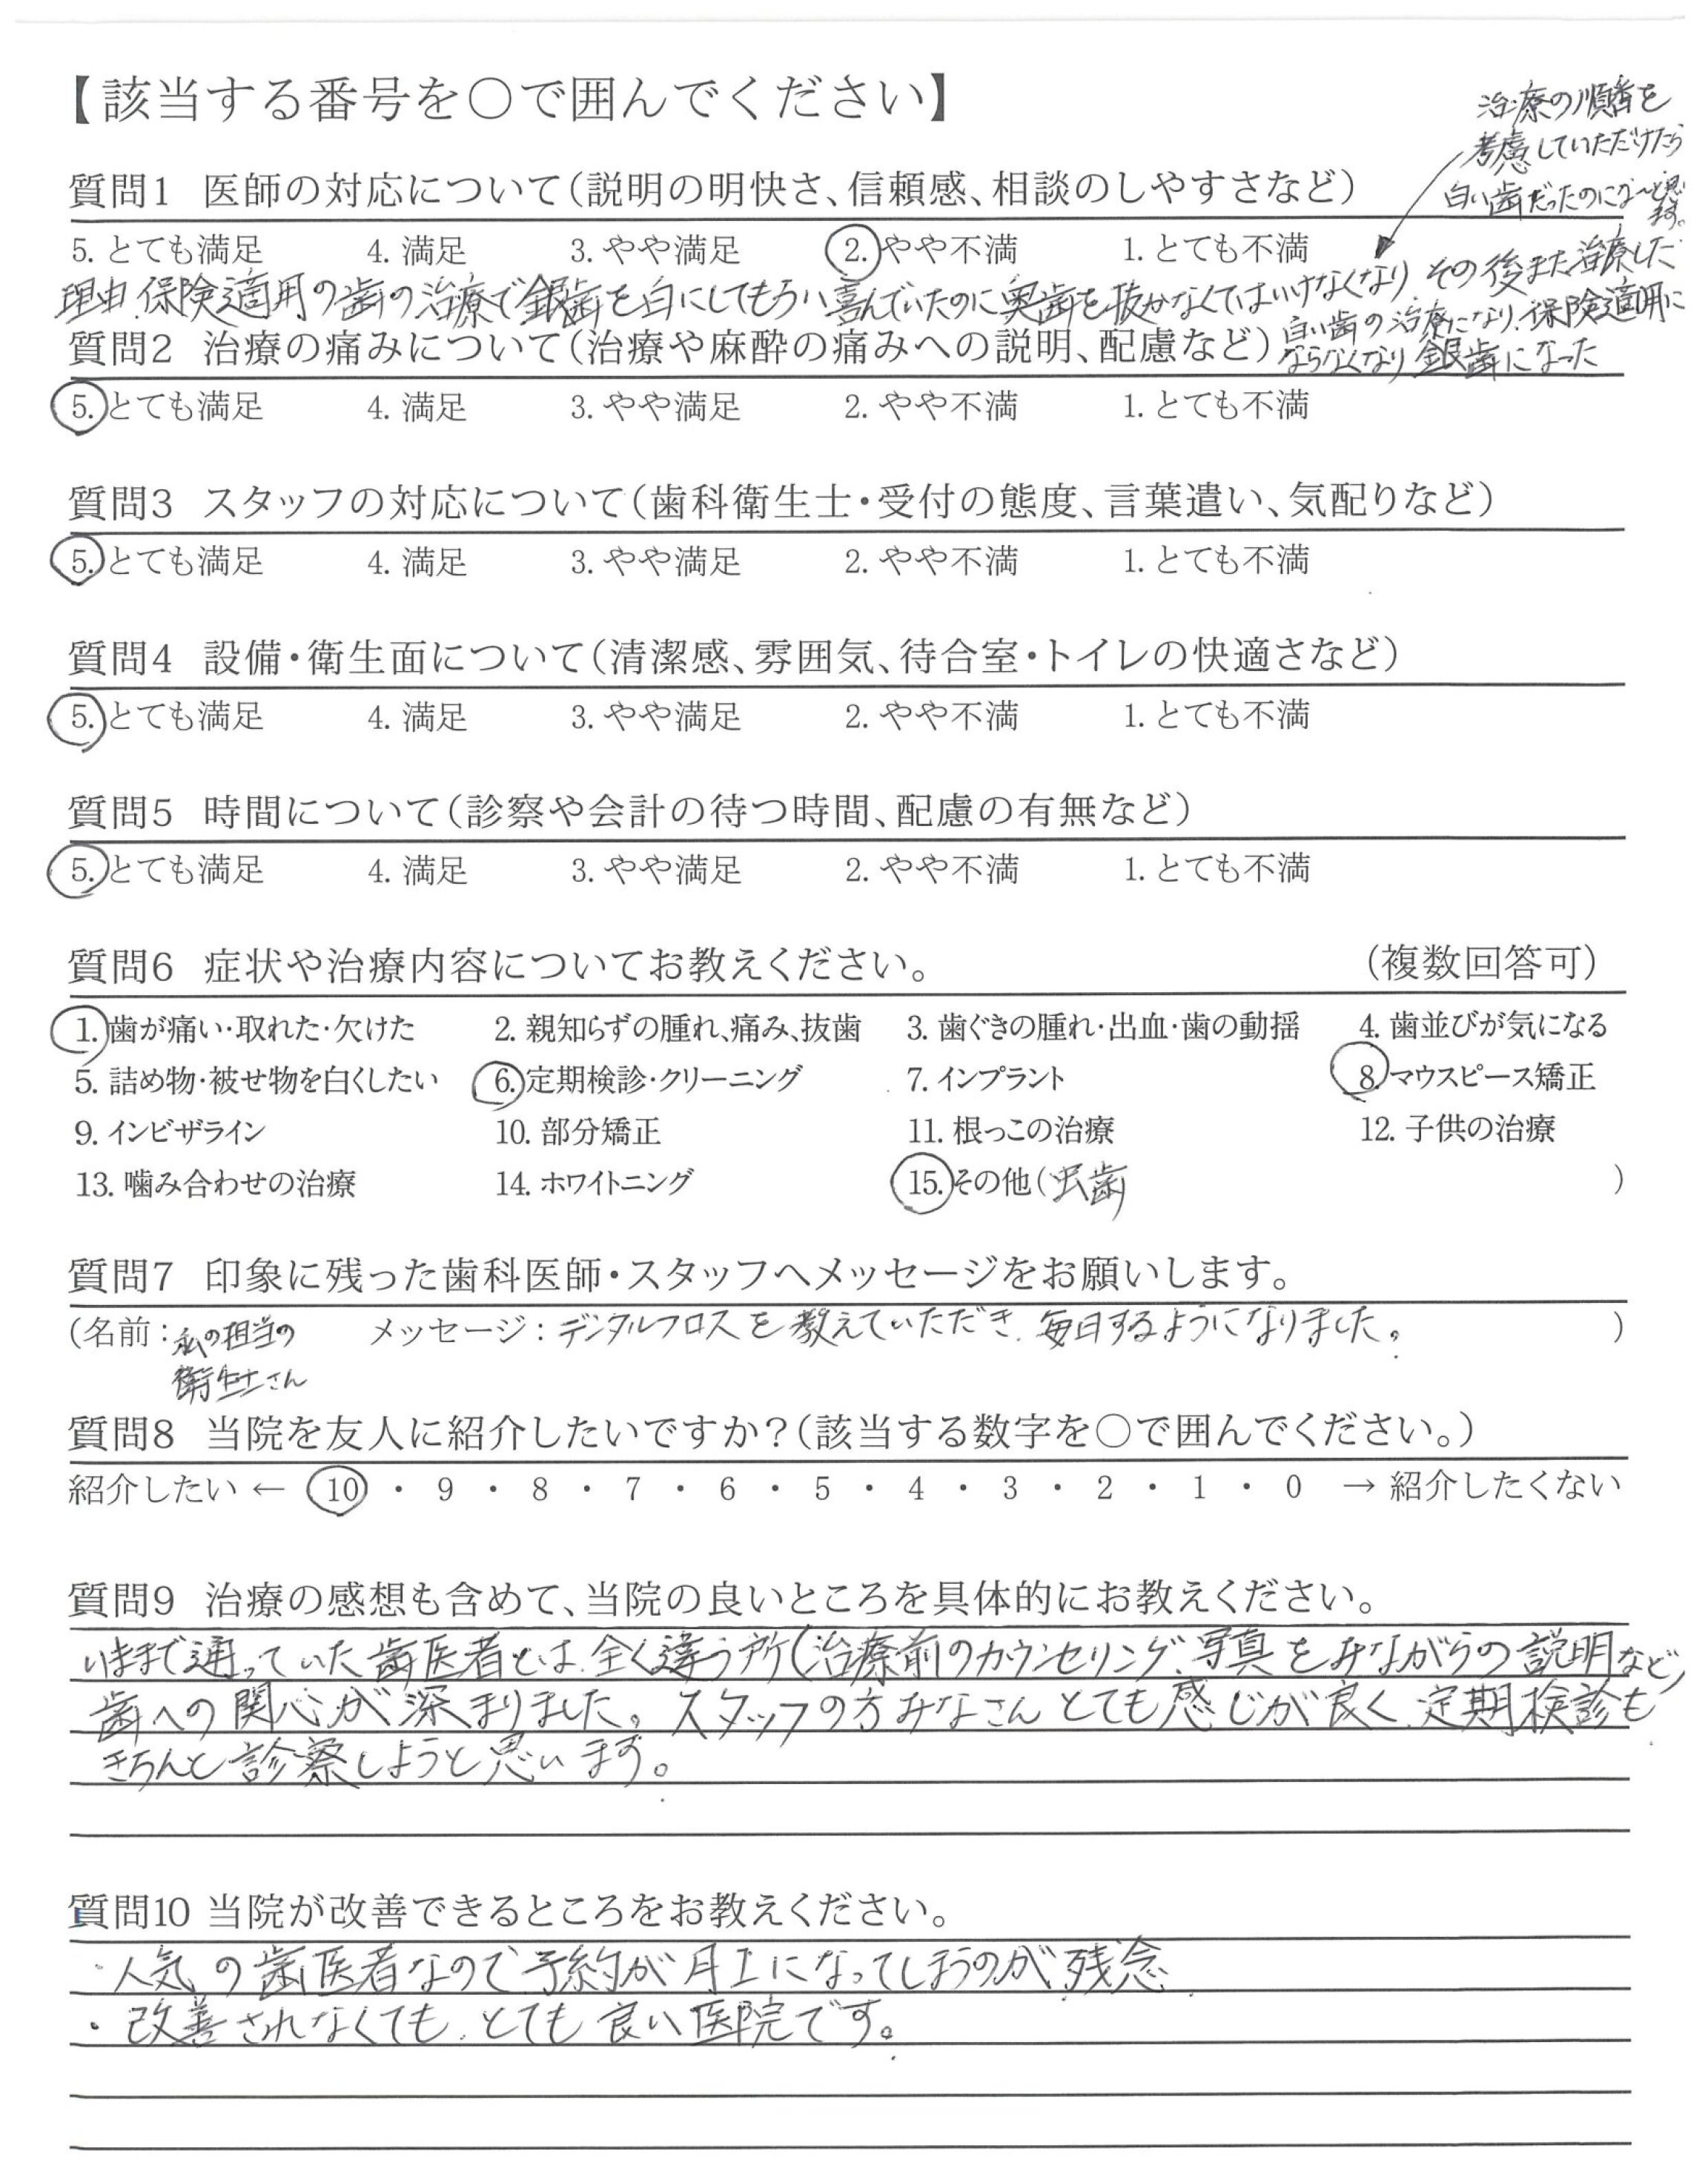 【該当する番号を○で囲んでください】
治療の順番を
考慮していただけたら
白い歯だったのにな〜と思い
ます。
質問1 医師の対応について（説明の明快さ、信頼感、相談のしやすさなど）
5. とても満足 4. 満足 3. やや満足 2. やや不満 1. とても不満
理由.保険適用の歯の治療で銀歯を白にしてもらい喜んでいたのに奥歯を抜かなくてはいけなくなり その後また治療した
白い歯の治療になり、保険適用に
ならなくなり 銀歯になった
質問2 治療の痛みについて（治療や麻酔の痛みへの説明、配慮など）
5. とても満足 4. 満足 3. やや満足 2. やや不満 1. とても不満
質問3 スタッフの対応について（歯科衛生士・受付の態度、言葉遣い、気配りなど）
5. とても満足 4. 満足 3. やや満足 2. やや不満 1. とても不満
質問4 設備・衛生面について（清潔感、雰囲気、待合室・トイレの快適さなど）
5. とても満足 4. 満足 3. やや満足 2. やや不満 1. とても不満
質問5 時間について（診察や会計の待つ時間、配慮の有無など）
5. とても満足 4. 満足 3. やや満足 2. やや不満 1. とても不満
質問6 症状や治療内容についてお教えください。 （複数回答可）
1. 歯が痛い・取れた・欠けた 2. 親知らずの腫れ、痛み、抜歯 3. 歯ぐきの腫れ・出血・歯の動揺 4. 歯並びが気になる
5. 詰め物・被せ物を白くしたい 6. 定期検診・クリーニング 7. インプラント 8. マウスピース矯正
9. インビザライン 10. 部分矯正 11. 根っこの治療 12. 子供の治療
13. 噛み合わせの治療 14. ホワイトニング 15. その他（虫歯 ）
質問7 印象に残った歯科医師・スタッフへメッセージをお願いします。
（名前：私の担当の メッセージ：デンタルフロスを教えていただき、毎日するようになりました。 ）
衛生士さん
質問8 当院を友人に紹介したいですか？（該当する数字を○で囲んでください。）
紹介したい ← 10 ・ 9 ・ 8 ・ 7 ・ 6 ・ 5 ・ 4 ・ 3 ・ 2 ・ 1 ・ 0 → 紹介したくない
質問9 治療の感想も含めて、当院の良いところを具体的にお教えください。
いままで通っていた歯医者とは、全く違う所（治療前のカウンセリング、写真をみながらの説明など）
歯への関心が深まりました。スタッフの方みなさんとても感じが良く、定期検診も
きちんと診察しようと思います。
質問10 当院が改善できるところをお教えください。
・人気の歯医者なので予約が月1になってしまうのが残念
・改善されなくても、とても良い医院です。